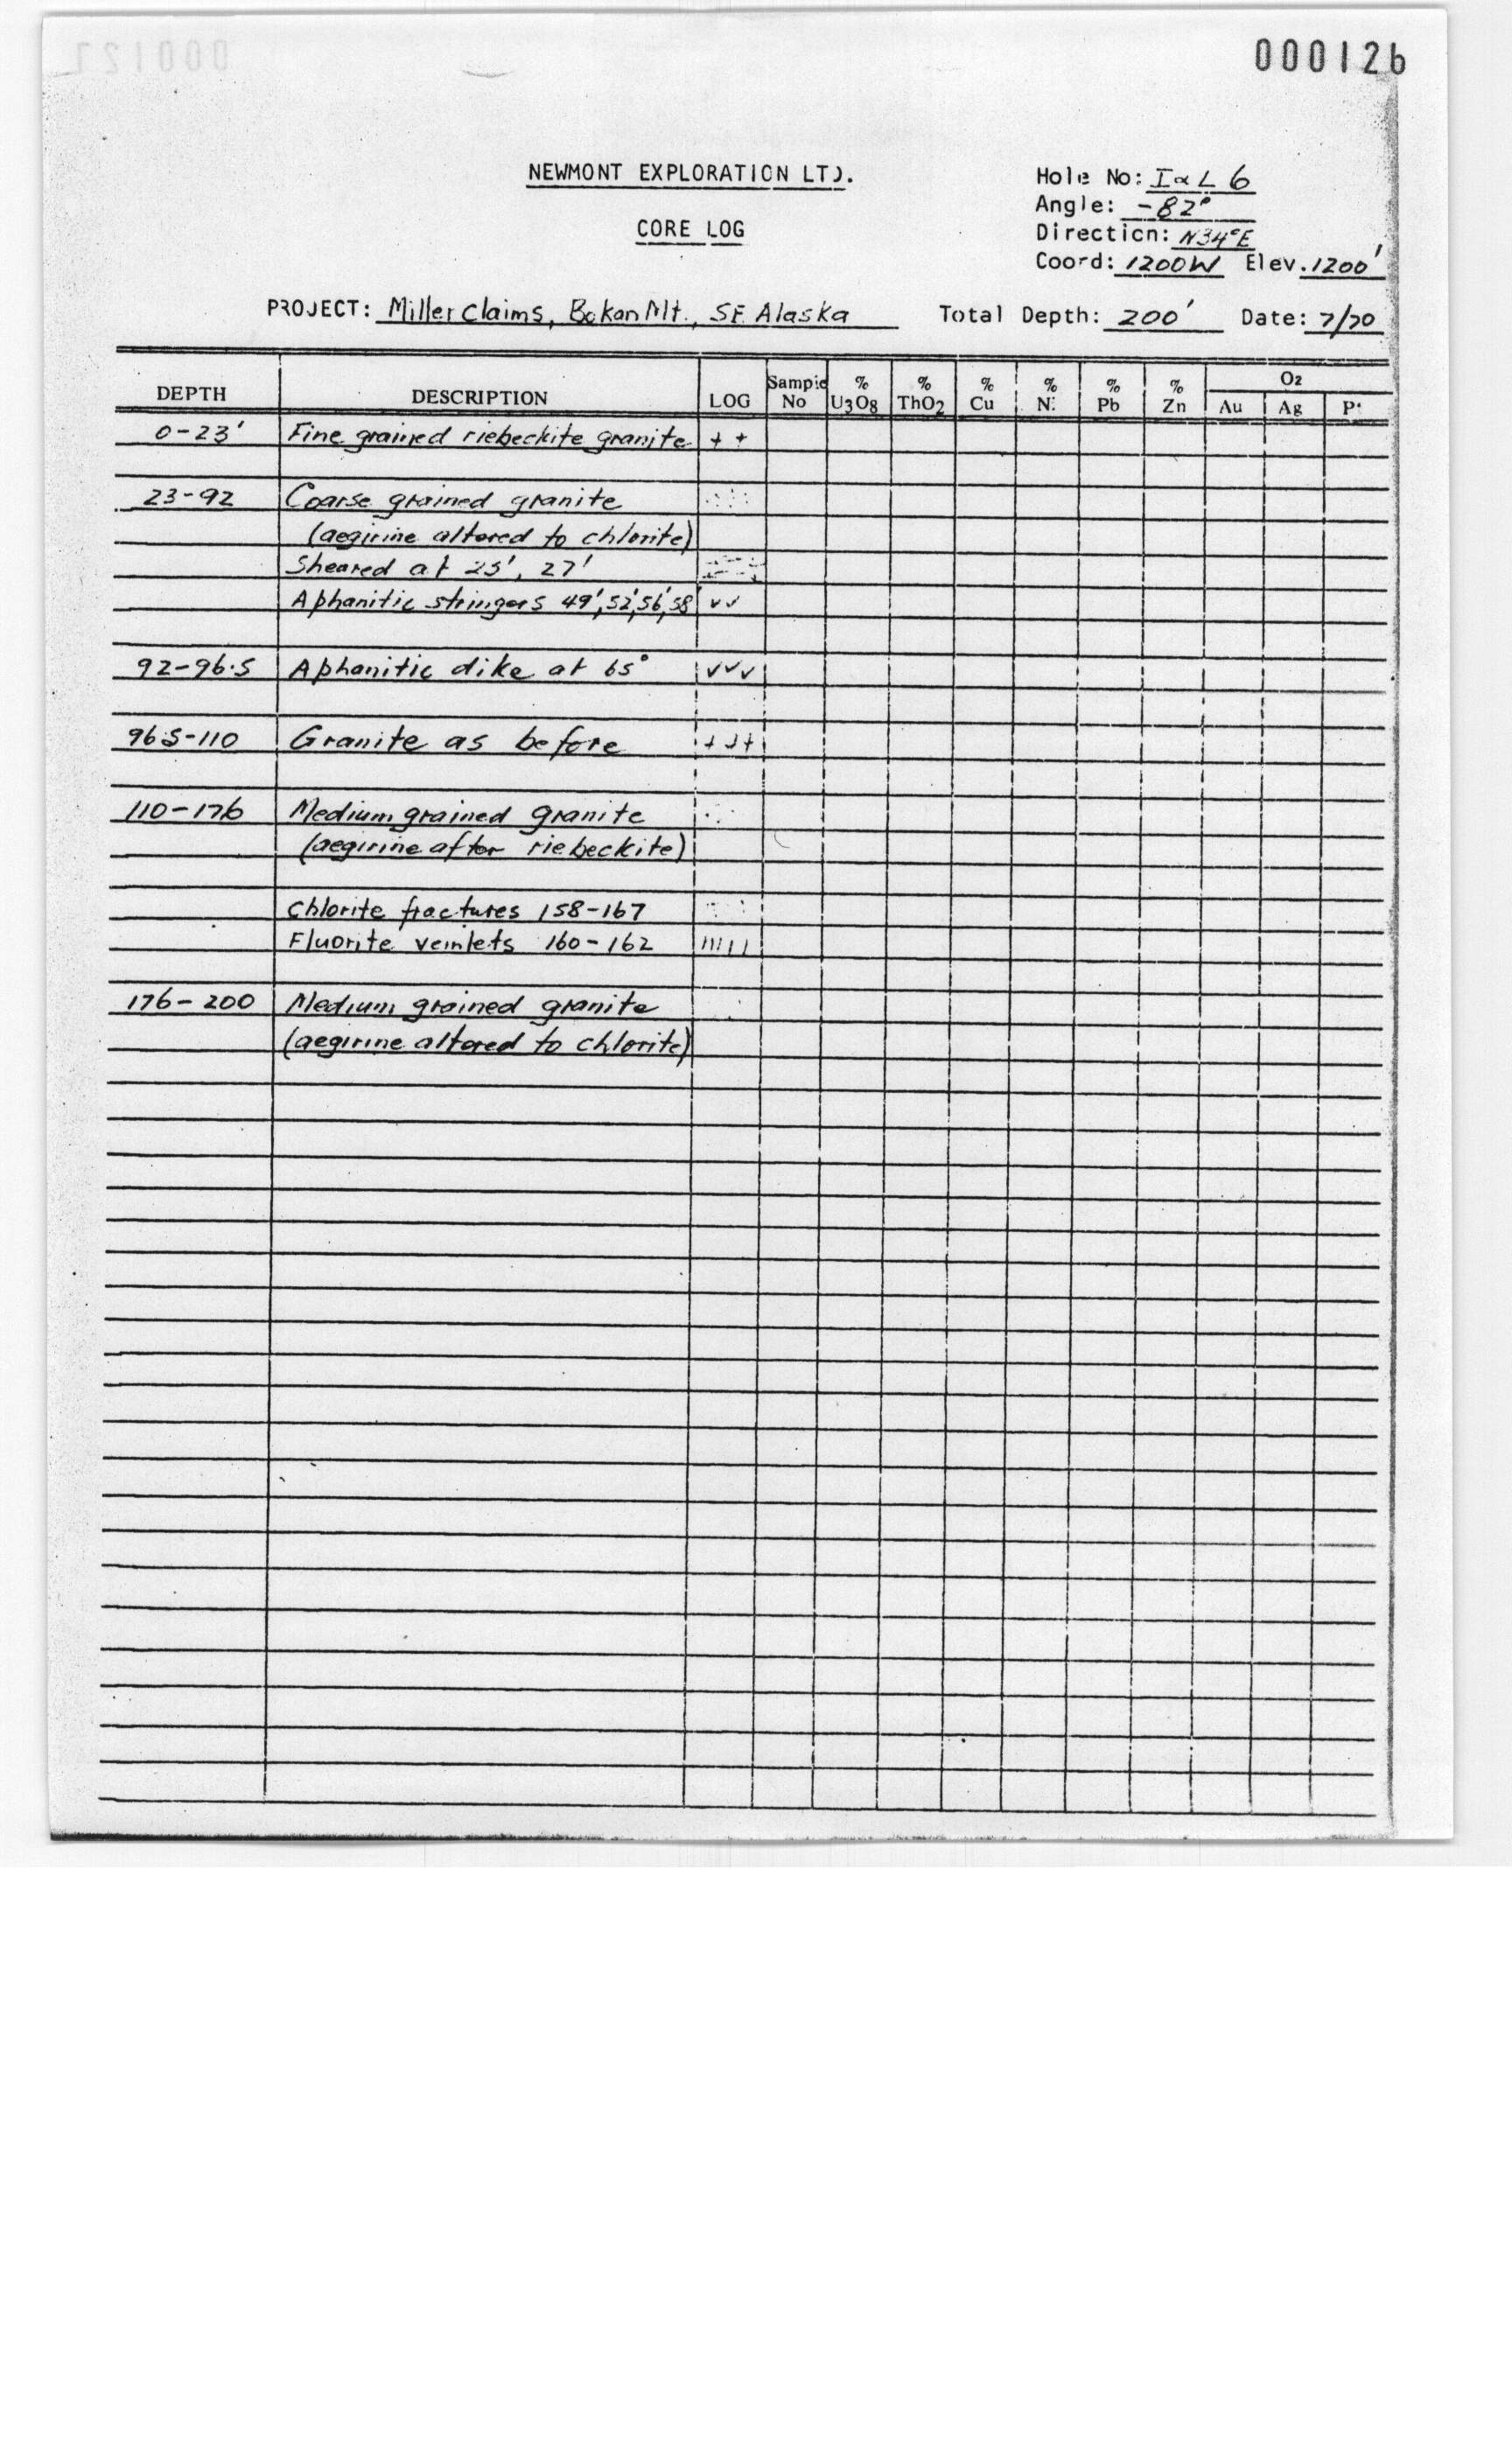 000126
NEWMONT EXPLORATION LTD.
CORE LOG
Hole No: I∝L 6
Angle: -82°
Direction: N34°E
Coord: 1200W Elev. 1200'
PROJECT: Miller Claims, Bokan Mt., SE Alaska Total Depth: 200' Date: 7/70
DEPTH DESCRIPTION LOG Sample No % U3O8 % ThO2 % Cu % Ni % Pb % Zn Oz Au Ag Pt
0-23' Fine grained riebeckite granite + +
23-92 Coarse grained granite
(aegirine altered to chlorite)
Sheared at 25', 27'
Aphanitic stringers 49', 52', 56', 58' vv
92-96.5 Aphanitic dike at 65° vvv
96.5-110 Granite as before +++
110-176 Medium grained granite
(aegirine after riebeckite)
Chlorite fractures 158-167
Fluorite veinlets 160-162
176-200 Medium grained granite
(aegirine altered to chlorite)